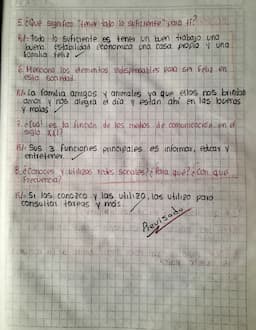 5.¿Qué significa "tener todo lo suficiente" para ti?
R/- Todo lo suficiente es tener un buen trabajo una
buena estabilidad económica una casa propia y una
familia feliz
6. Menciona los elementos indispensables para ser feliz en
esta sociedad.
R/- La familia amigos y animales ya que ellos nos brindan
amor y nos alegra el día y están ahí en las buenas
y malas
7. ¿Cuál es la función de los medios de comunicación en el
siglo XXI?
R/- Sus 3 funciones principales es informar, educar y
entretener.
8. ¿Conoces y utilizas redes sociales? ¿Para qué? ¿Con qué
frecuencia?
R/- Si las conozco y las utilizo, las utilizo para
consultar tareas y más.
Revisado